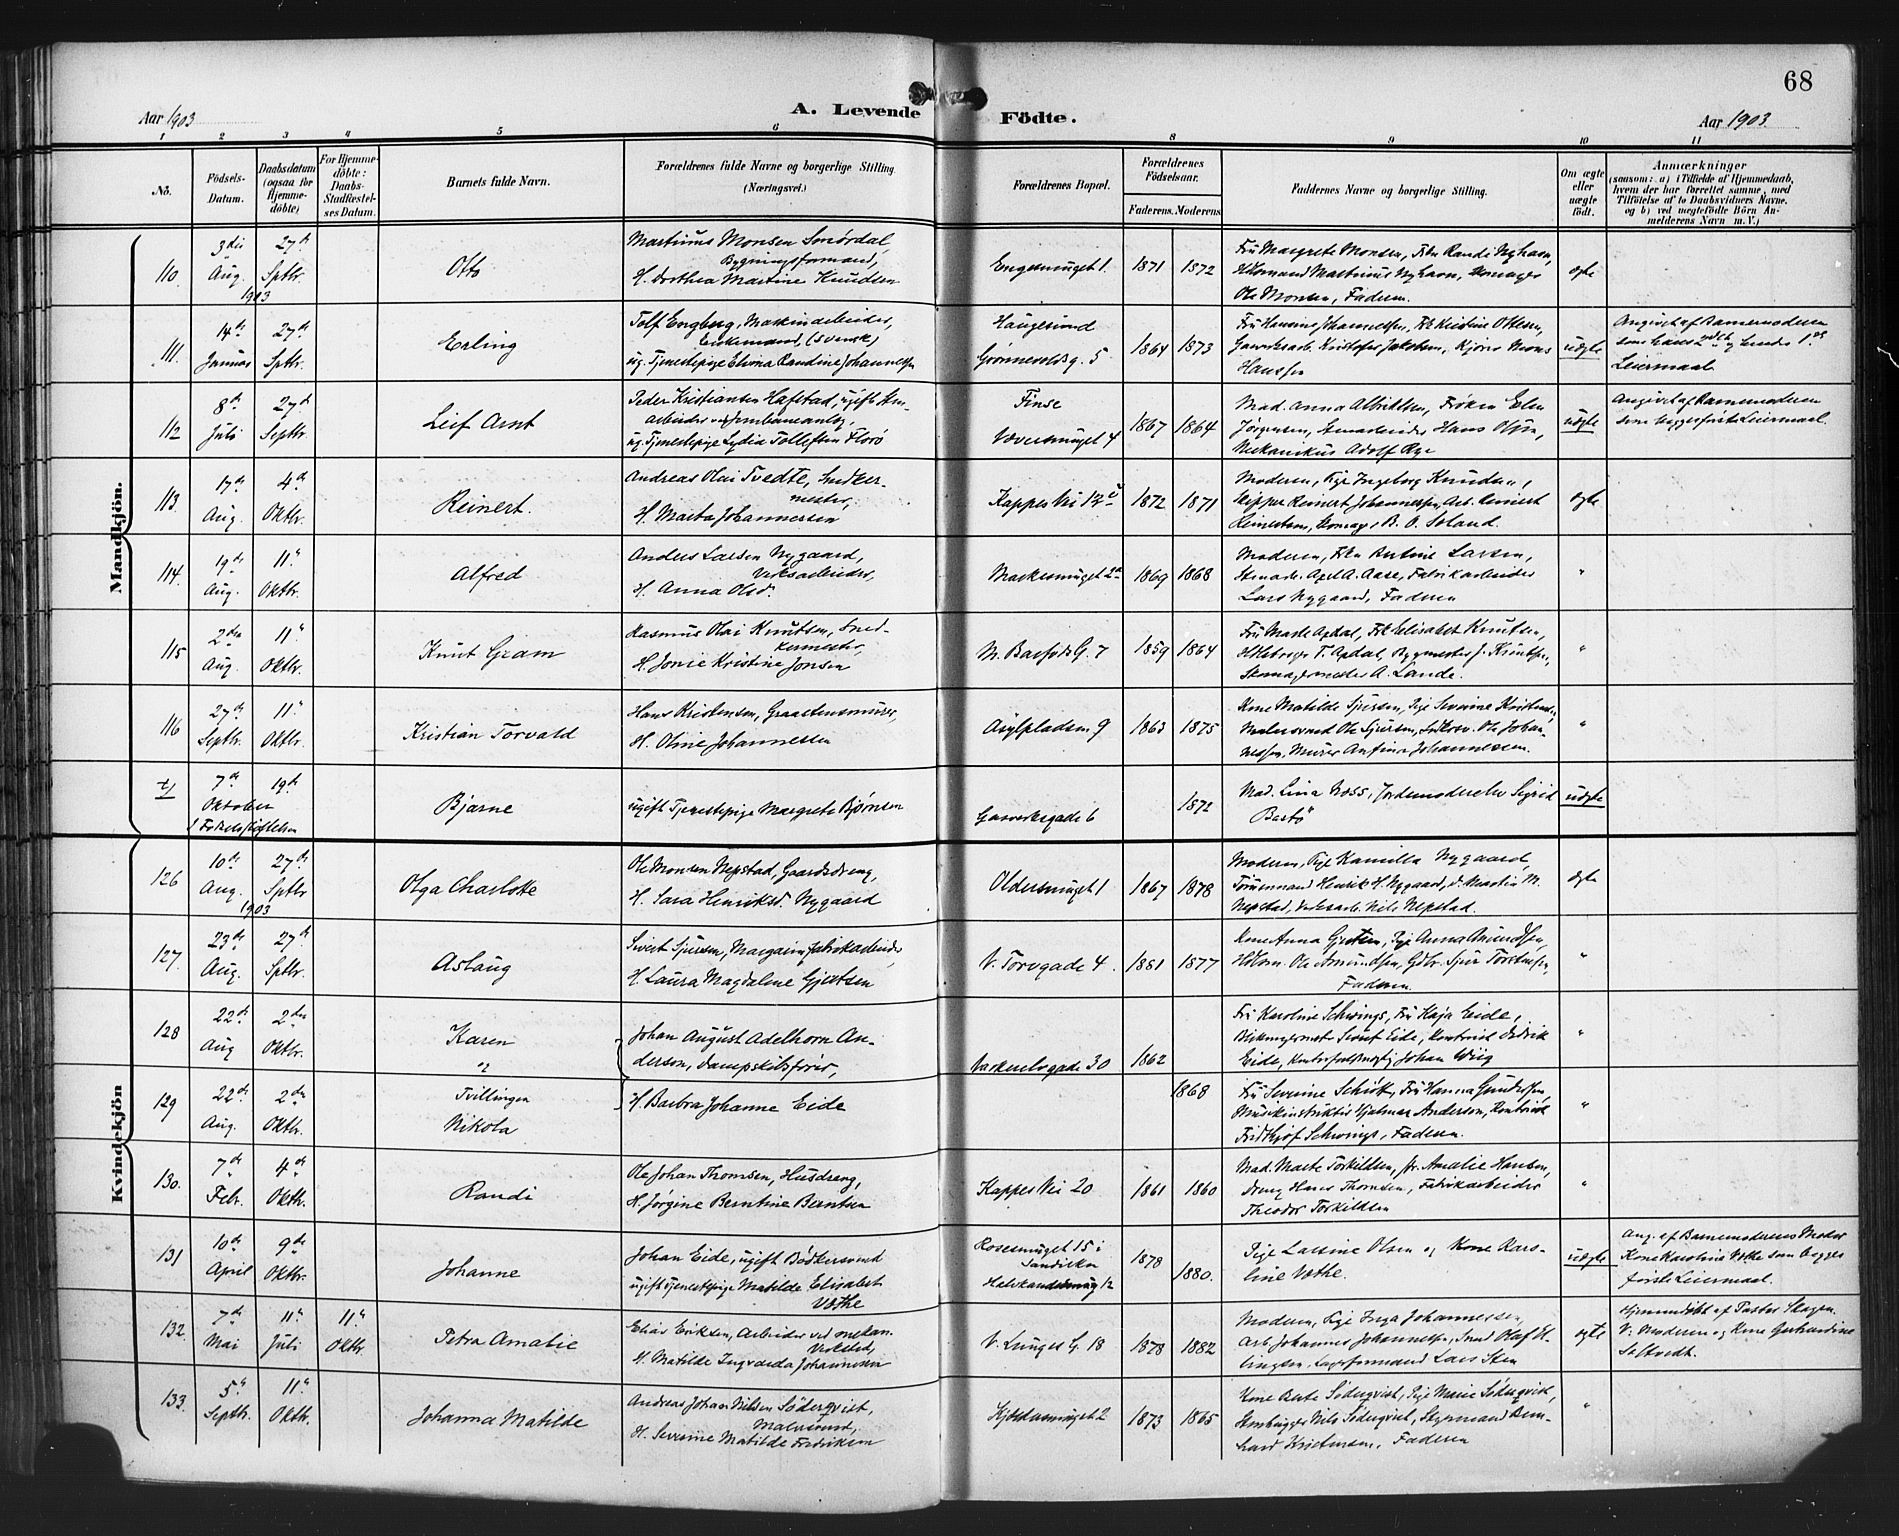 68
Aar 1903
A. Levende Födte.
Aar 1903
1 2 3 4 5 6 8 9 10 11
No.
Födsels-Datum.
Daabsdatum (ogsaa for Hjemme-döbte)
For Hjemme-döbte: Daabs-Stadfæstel-ses Datum.
Barnets fulde Navn.
Forældrenes fulde Navne og borgerlige Stilling (Næringsvei.)
Forældrenes Bopæl.
Forældrenes Födselsaar.
Faderens. Moderens.
Faddernes Navne og borgerlige Stilling.
Om ægte eller uægte födt.
Anmærkninger
(saasom: a) i Tilfælde af Hjemmedaab,
hvem der har forrettet samme, med
Tilföielse af to Daabsvidners Navne,
og b) ved uægtefödte Börn An-
melderens Navn m. V.)
Mandkjön.
110. 3die Aug. 1903 27de Septbr. Otto
Martinus Monsen Smørdal,
Bygningsformand,
H. Dorthea Martine Knudsen
Engesmuget 1. 1871 1872
Fru Margrete Monsen, Frkn Randi Nyhavn,
Martinus Nyhavn,
Ole Monsen, Faderen.
ægte
111. 14de Januar 27de Septbr. Erling
Tolf Engberg, Maskinarbeider,
Enkemand, (svensk)
ug. Tjenestepige Elvina Randine Johannessen
Haugesund
Grønnevoldsg. 5 1864 1873
Fru Hansine Johannessen, Frk Kristine Ottesen,
Gasverksarb. Kristofer Jakobsen, Mons
Hanssen
uægte
Angivet af Barnemoderen
som hans 2det og hendes 1ste
Leiermaal.
112 8de Juli 27de Septbr. Leif Arnt
Peder Kristiansen Hafstad, ugift
arbeider ved Jernbaneanlæg,
ug. Tjenestepige Lydia Tollefsen Florø
Finse
Væversmuget 4 1867 1864
Mad. Anna Albriktsen, Frøken Elen
Jørgensen, Stenarbeider Hans Olsen,
Mekanikus Adolf Rye
uægte
Angivet af Barnemoderen
som begges første Leiermaal.
113. 17de Aug. 4de Oktbr. Reinert.
Andreas Olai Tvedte, Snedker-
mester,
H. Marta Johannessen
Kappes Vei 12 1872 1871
Moderen, Pige Ingeborg Knudsen,
Skipper Reinert Johannessen, Arb. Reinert
B. O. Soland.
ægte
114. 19de Aug. 11" Oktbr. Alfred
Anders Larsen Nygaard,
Verksarbeider,
H. Anna Olsd.
Markesmuget 2a 1869 1868
Moderen, Frkn Antine Larsen,
Stenarb. Axel A. Aase, Fabrikarbeider
Lars Nygaard, Faderen
"
115 2den Aug. 11" Oktbr. Knut Gram
Rasmus Olai Knutsen, Sned-
kermester,
H. Jonie Kristine Jonsen
N. Barfods G. 7 1859 1864
Fru Marte Apdal, Frk Elisabet Knutsen,
T. Apdal, Bygmester J. Knutsen,
Skomagermester A. Lande.
"
116 27de Septbr. 11" Oktbr. Kristian Torvald
Hans Kristensen, Graastensmurer,
H. Oline Johannessen
Asylpladsen 9 1863 1875
Kone Matilde Sjursen, Pige Severine Kristensen,
Malersvend Ole Sjursen, Ole Johan-
nessen, Murer Antinus Johannessen.
"
7de Oktober 19de Bjarne
i Fødselsstiftelsen
ugift Tjenestepige Margrete Bjørnsen
Gasverksgade 6 1872
Mad. Lina Næss, Jordemoderelev Sigrid
Barbø
uægte
Kvindekjön
126 10de Aug. 1903 27de Septbr Olga Charlotte
Ole Monsen Nepstad, Gaardsdreng,
H. Sara Henriksd. Nygaard
Oldersmuget 1 1867 1878
Moderen, Pige Kamilla Nygaard,
Tømmermand Henrik H. Nygaard, d. Martin M.
Nepstad, Verksarb. Nils Nepstad.
ægte
127. 23de Aug. 27de Septbr. Aslaug
Sivert Sjursen, Margarinfabrikarbeider,
H. Laura Magdalene Gjertsen
V. Torvgade 4. 1881 1877
Kone Anna Gjertsen, Pige Anna Amundsen,
Ole Amundsen, Gdbr. Sjur Torstensen,
Faderen.
"
128 22de Aug 2den Oktbr. Karen
og
Johan August Adelhorn An-
derson, Dampskibsfører,
Vaskerelvsgade 30 1862
Fru Karoline Schwings, Fru Kaja Eide,
Blikkenslagermester Sivert Eide, Kontorist Didrik
Eide, Kontorfuldmægtig Johan Wiig
"
129 22de Aug. 2den Oktbr.
Tvillingen
Nikola
H. Barbra Johanne Eide
1868
Fru Severine Schiøtt, Fru Hanna Gundersen,
Musikinstruktør Hjalmar Anderson, Kontorist
Fridthjof Schwings, Faderen.
"
130. 7de Febr. 4de Oktbr. Randi
Ole Johan Thomsen, Husdreng,
H. Jørgine Berntine Berntsen
Kappes Vei 20 1861 1860
Mad. Marte Torkildsen, Fr. Amalie Hansen,
Dreng Hans Thomsen, Fabrikarbeider
Theodor Torkildsen
"
131 10de April 9de Oktbr. Johanne
Johan Eide, ugift Bødkersvend
ugift Tjenestepige Matilde Elisabet
Vothe
Rosesmuget 15 i
Sandviken
12 1878 1880.
Pige Larsine Olsen og Kone Karo-
line Vothe.
uægte
Ang. af Barnemoderens Moder
Kone Karoline Vothe som begges
første Leiermaal.
132. 7de Mai 11" Juli 11" Oktbr. Petra Amalie
Elias Eriksen, Arbeider ved mekan.
Verksted,
H. Matilde Ingvarda Johannessen
V. Lunges G. 18 1878 1882
Moderen, Pige Inga Johannessen,
Arb. Johannes Johannessen, Olaf El-
lingsen, Lagerformand Lars Sten
ægte
Hjemmedøbt af Pastor Skagen.
V: Moderen og Kone Gerhardine
Soltvedt.
133. 5" Septbr. 11" Oktbr. Johanna Matilde
Andreas Johan Nilsen Söderqvist,
Malersvend,
H. Severine Matilde Fredriksen
2 1873 1865
Kone Berte Söderqvist, Pige Marie Söderqvist,
Stenhugger Nils Söderqvist, Styrmand Bern-
hard Kristensen, Faderen
"